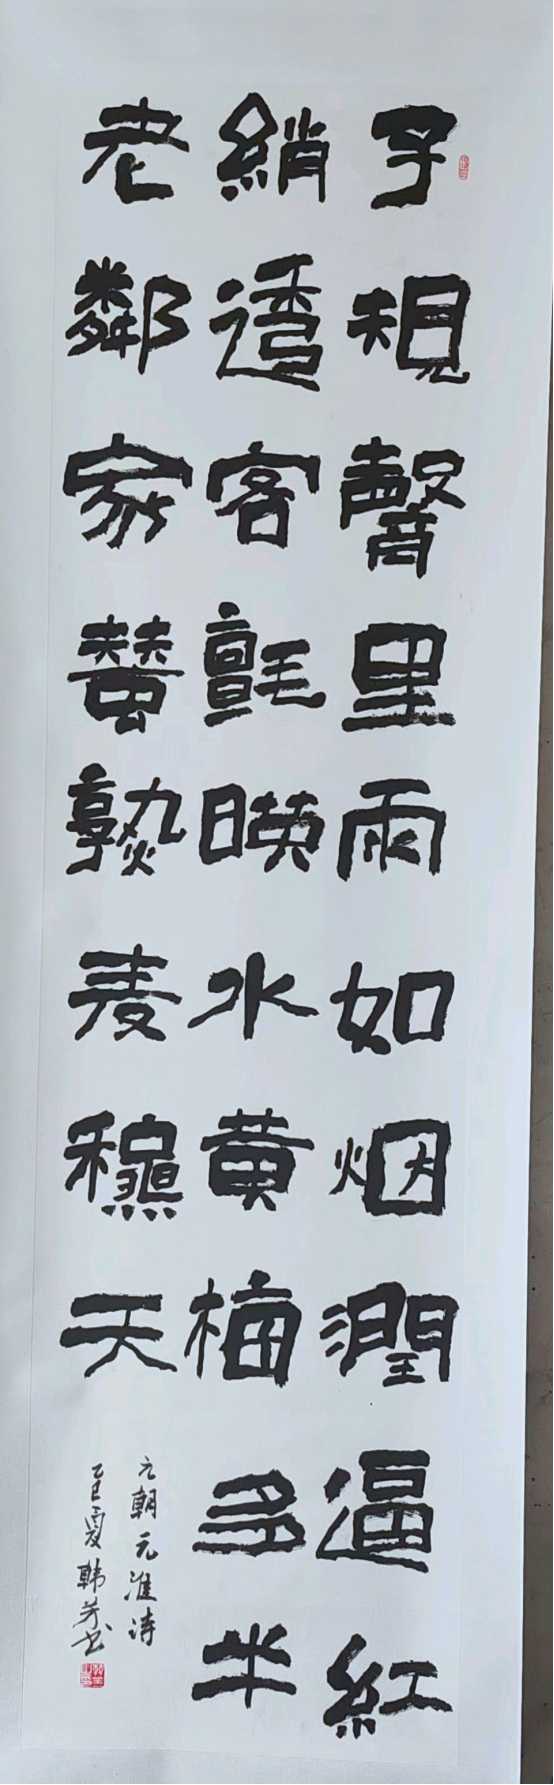 子規聲里雨如烟潤逼紅
綃透客氈暎水黃梅多半
老鄰家蠶熟麥穐天
元朝元淮诗
乙巳夏韩芳书